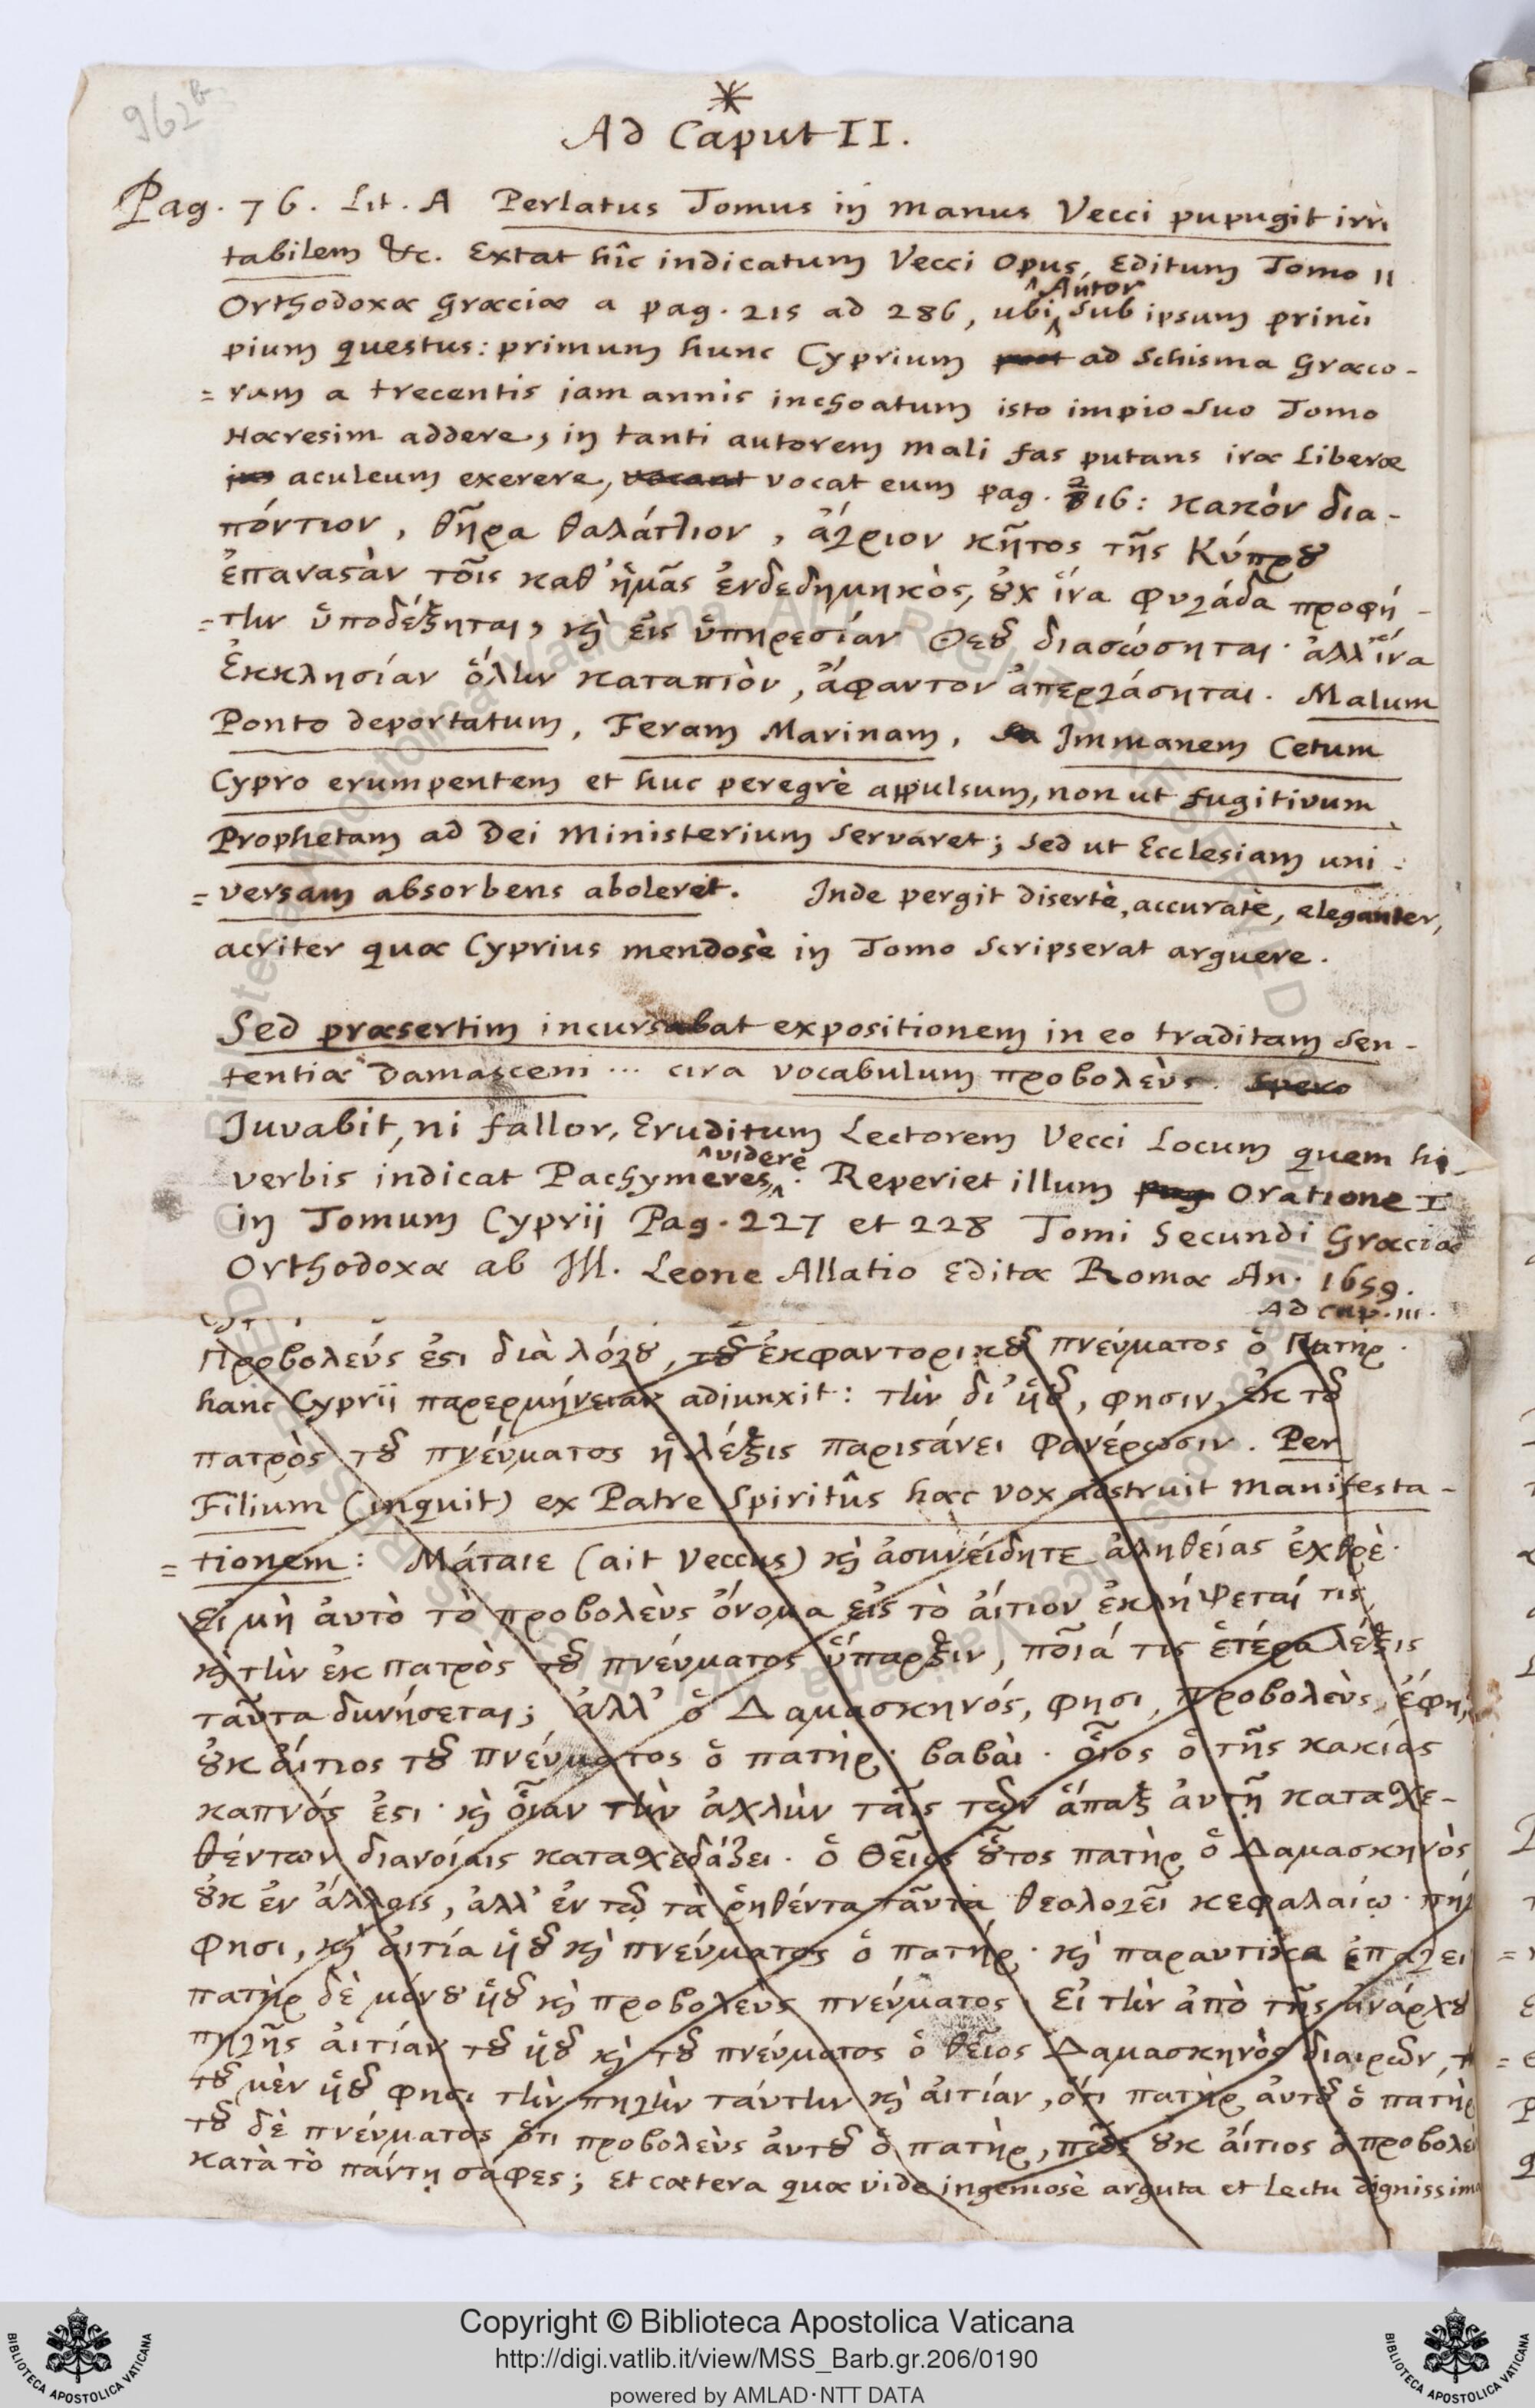 962
*
Ad Caput II.
Pag. 76. Lit. A Perlatus Tomus in manus Vecci pupugit irri
tabilem &c. Extat hîc indicatum Vecci Opus, Editum Tomo II
Orthodoxæ Græciæ a pag. 215 ad 286, ubi Autor sub ipsum princi
pium questus: primum hunc Cyprium ad Schisma Græco-
=rum a trecentis jam annis inchoatum isto impio suo Tomo
Hæresim addere, in tanti autorem mali fas putans iræ Liberæ
aculeum exerere, vocant vocat eum pag. 216: κακὸν δια-
πόντιον, θῆρα θαλάττιον, ἄγριον κῆτος τῆς Κύπρȣ
ἐπαναϛὰν τοῖς καθ' ἡμᾶς ἐνδεδημηκὸς, ȣχ ἵνα φυγάδα προφή-
=την ὑποδέξηται, καὶ εἰς ὑπηρεσίαν Θεȣ διασώσηται· ἀλλ' ἵνα
Ἐκκλησίαν ὅλην καταπιὸν, ἄφαντον ἀπεργάσηται. Malum
Ponto deportatum, Feram Marinam, Immanem Cetum
Cypro erumpentem et huc peregrè appulsum, non ut fugitivum
Prophetam ad Dei Ministerium servaret; sed ut Ecclesiam uni-
=versam absorbens aboleret. Inde pergit disertè, accuratè, eleganter,
acriter quæ Cyprius mendosè in Tomo scripserat arguere.
Sed præsertim incursabat expositionem in eo traditam sen-
tentiæ Damasceni ... circa vocabulum προβολεὺς. Spero
Juvabit, ni fallor, Eruditum Lectorem Vecci Locum quem hi
verbis indicat Pachymeres videre. Reperiet illum pag Oratione I
in Tomum Cyprii Pag. 227 et 228 Tomi Secundi Græciæ
Orthodoxæ ab Ill. Leone Allatio Editæ Romæ An. 1659.
Ad cap. III.
Προβολεύς ἐϛι διὰ λόγȣ, τȣ ἐκφαντορικȣ πνεύματος ὁ Πατήρ.
hanc Cyprii παρερμήνειαν adjunxit: τὴν δι' ὑȣ, φησιν, ἐκ τȣ
πατρὸς τȣ πνεύματος ἡ λέξις παριϛάνει φανέρωσιν. Per
Filium (inquit) ex Patre Spiritûs hæc vox adstruit manifesta-
=tionem: Μάταιε (ait Veccus) καὶ ἀσυνείδητε ἀληθείας ἐχθρὲ·
εἰ μὴ ἀυτὸ τὸ προβολεὺς ὄνομα εἰς τὸ ἀίτιον ἐκλήψεταί τις
καὶ τὴν ἐκ πατρὸς τȣ πνεύματος ὕπαρξιν, ποῖά τις ἑτέρα λέξις
ταῦτα δυνήσεται; ἀλλ' ὁ Δαμασκηνός, φησι, προβολεὺς, ἔφη,
ȣκ ἀίτιος τȣ πνεύματος ὁ πατήρ· βαβὰι· οἷος ὁ τῆς κακίας
καπνός ἐϛι· καὶ οἵαν τὴν ἀχλὺν ταῖς τῶν ἅπαξ ἀυτῇ κατασχε-
θέντων διανοίαις κατασκεδάζει. ὁ Θεῖος ȣτος πατὴρ ὁ Δαμασκηνὸς
ȣκ ἐν ἄλλοις, ἀλλ' ἐν τῷ τὰ ῥηθέντα ταῦτα θεολογεῖ κεφαλαίῳ· πηγὴ
φησι, καὶ ἀιτία ὑȣ καὶ πνεύματος ὁ πατήρ· καὶ παραυτίκα ἐπάγει
πατὴρ δὲ μόνȣ ὑȣ καὶ προβολεὺς πνεύματος· Εἰ τὴν ἀπὸ τῆς ἀνάρχȣ
πηγῆς ἀιτίαν τȣ ὑȣ καὶ τȣ πνεύματος ὁ θεῖος Δαμασκηνὸς διαιρῶν,
τȣ μὲν ὑȣ φησι τὴν πηγὴν ταύτην καὶ ἀιτίαν, ὅτι πατὴρ ἀυτȣ ὁ πατὴρ
τȣ δὲ πνεύματος ὅτι προβολεὺς ἀυτȣ ὁ πατὴρ, πῶς ȣκ ἀίτιος ὁ προβολεὺ
κατὰ τὸ πάντῃ σάφες; Et cætera quæ vide ingeniosè arguta et Lectu dignissima
Copyright © Biblioteca Apostolica Vaticana
http://digi.vatlib.it/view/MSS_Barb.gr.206/0190
powered by AMLAD·NTT DATA
BIBLIOTECA APOSTOLICA VATICANA
BIBLIOTECA APOSTOLICA VATICANA